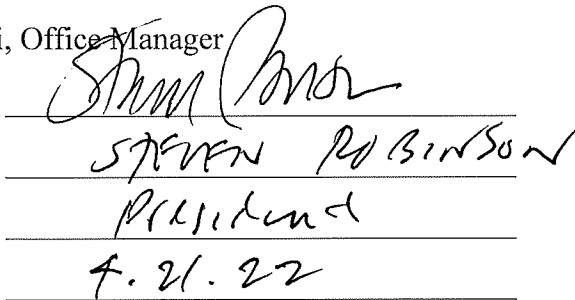 i, Office Manager
STEVEN ROBINSON
President
4.21.22